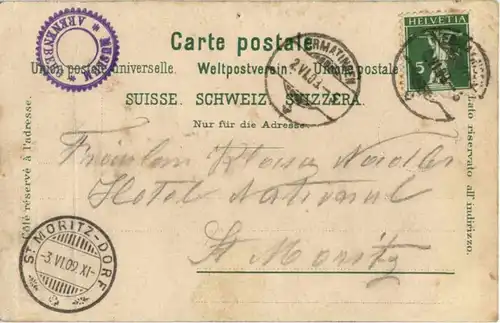 MUSEUM ARENENBERG
Carte postale.
HELVETIA
5
Union postale universelle. Weltpostverein. Unione postale
SUISSE. SCHWEIZ. SVIZZERA.
Nur für die Adresse.
Côté réservé à l'adresse.
Lato riservato all' indirizzo.
ERMATINGEN
2 VI 09
Fräulein Klara Nadler
Hotel National
St Moritz
ST MORITZ-DORF
-3.VI.09.XI-